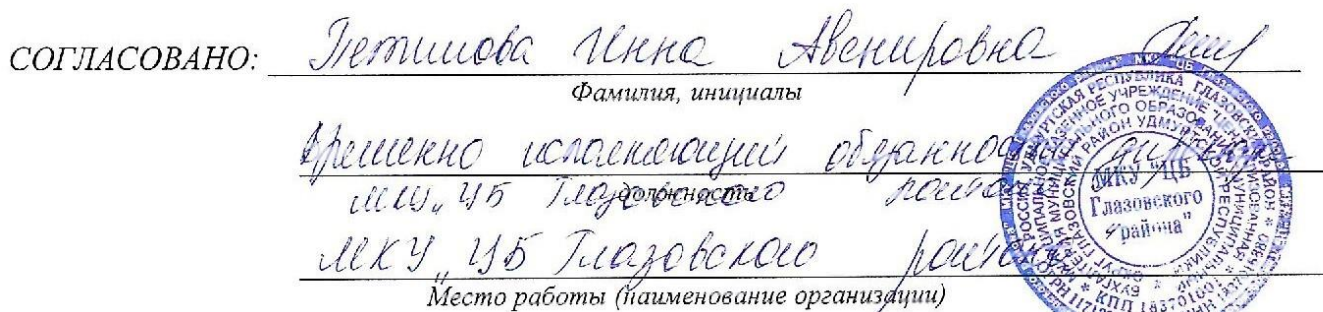 СОГЛАСОВАНО: Инна Авенировна
Фамилия, инициалы
Временно исполняющий обязанности
должность
МКУ "ЦБ Глазовского района
МКУ "ЦБ Глазовского района
Место работы (наименование организации)
МКУ "ЦБ
Глазовского
района"